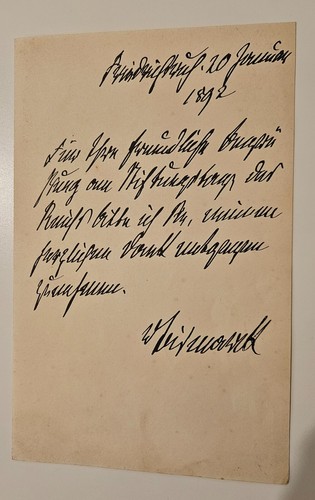 Friedrichsruh. 20 Januar
1892
Für Ihre freundliche Begrü
ßung am Stiftungstage des
Reichs bitte ich Sie, meinen
herzlichen Dank entgegen
zunehmen.
v Bismarck